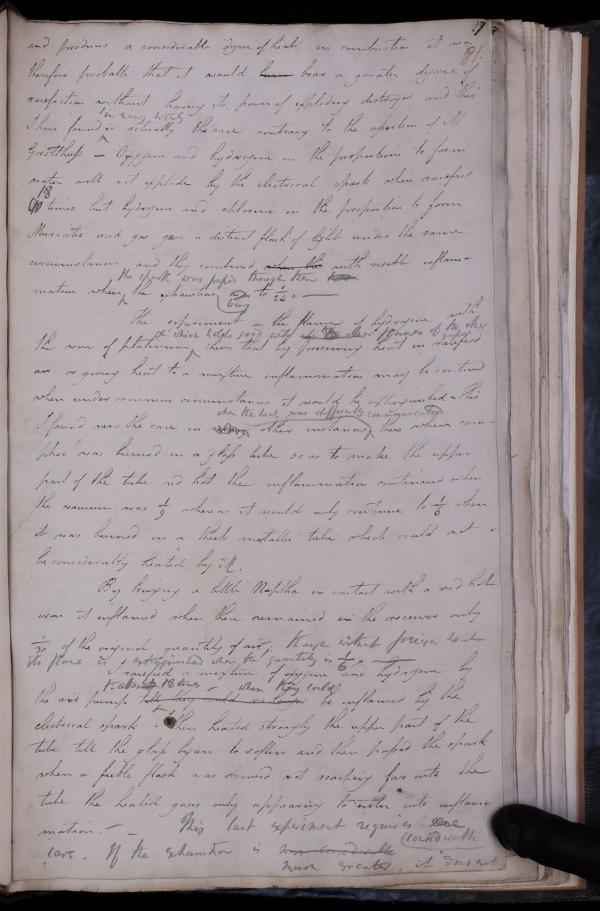 17
81.
and produces a considerable degree of heat in combustion it was
therefore probable that it would bear a greater degree of
rarefaction without having its power of exploding destroyed and this
in many trials
I have found is actually the case contrary to the assertion of M
Grotthuss — Oxygene and hydrogene in the proportion to form
water will not explode by the electrical spark when rarefied
18
times but hydrogene and chlorine in the proportion to form
Muriatic acid gas gave a distinct flash of light under the same
circumstances and they combined when the with visible inflam-
the spark was passed through them
mation when the exhaustion was to 1/24. —
being
The experiment on the flame of hydrogene with
which holds good with the other flames
the wire of platinum, shews that by preserving heat in rarefied
air or giving heat to a mixture inflammation may be continued
when under common circumstances it would be extinguished – This
when the heat was differently communicated
I found was the case in other instances, thus when cam-
phor was burned in a glass tube so as to make the upper
part of the tube red hot the inflammation continued when
the vacuum was 1/9 whereas it would only continue to 1/6 when
it was burned in a thick metallic tube which could not
be considerably heated by it.
By bringing a little Naptha in contact with a red hot
iron it inflamed when there remained in the receiver only
1/30 of the original quantity of air, though without foreign heat
its flame is extinguished when the quantity is 1/6. —
I rarefied a mixture of oxygene and hydrogene by
18 times — when they could
the air pump till they could no longer be inflamed by the
electrical spark. I then heated strongly the upper part of the
tube till the glass began to soften and then passed the spark
when a feeble flash was observed not reaching far into the
tube the heated gases only appearing to enter into inflam-
mation. — This last experiment requires
considerable
care. If the exhaustion is more considerable
much greater, it does not